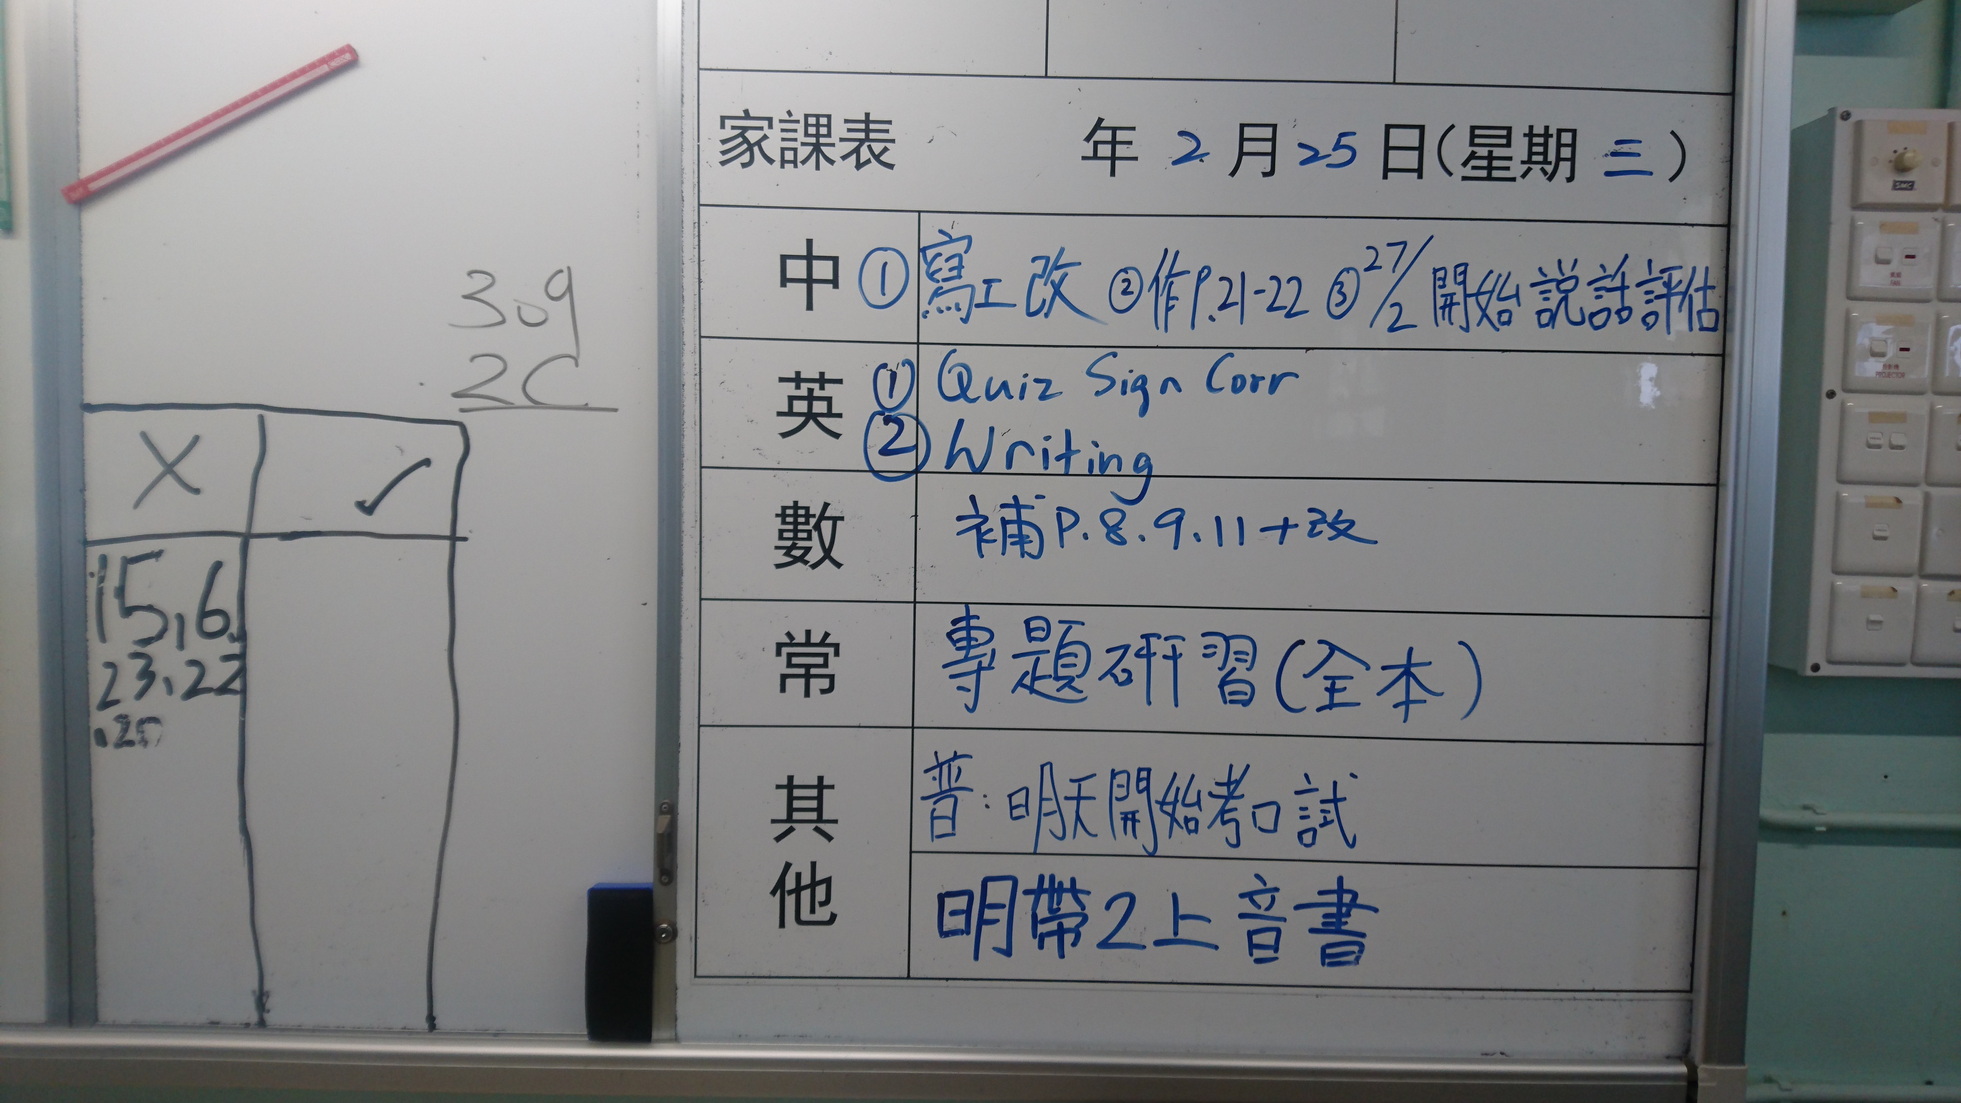 309
2C
X ✓
15,6.
23,22
家課表 年 2 月 25 日(星期 三)
中 ① 寫工改 ②作P.21-22 ③27/2 開始說話評估
英 ① Quiz Sign Corr
② Writing
數 補P.8.9.11+改
常 專題研習(全本)
其他 普:明天開始考口試
明帶2上音書